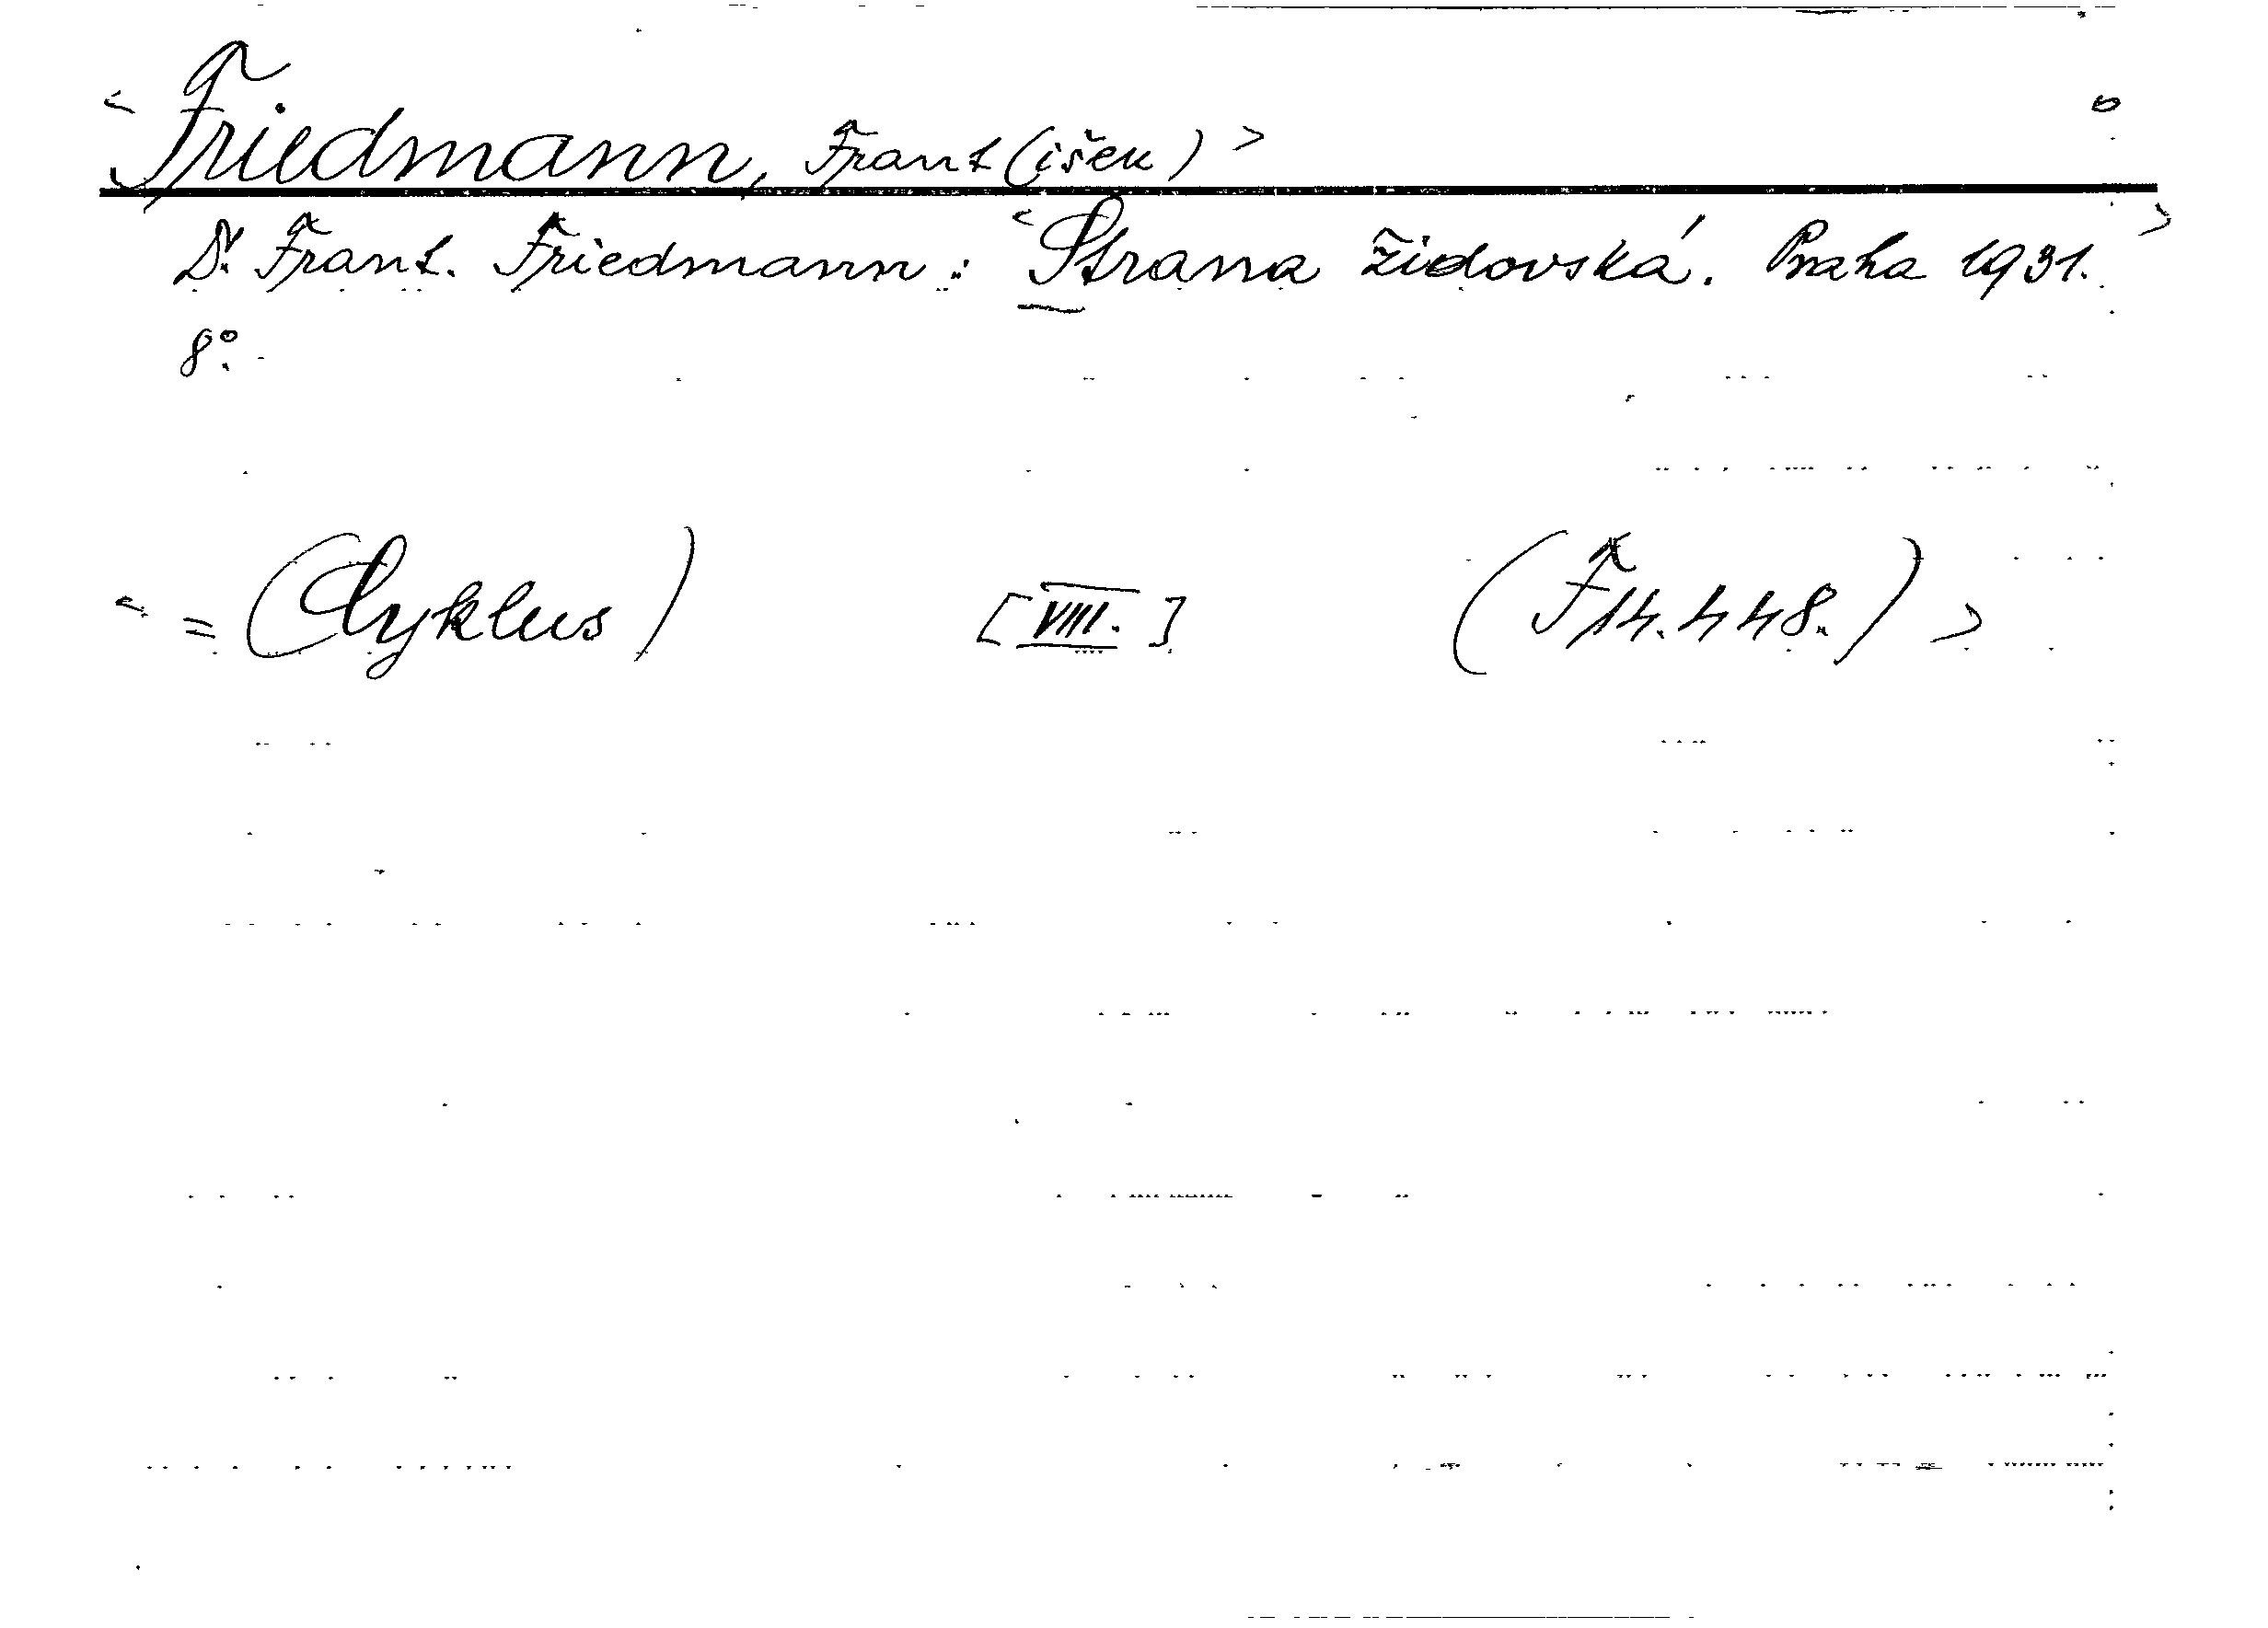 < Friedmann, Frant(išek) > o
Dr. Frant. Friedmann: < Strana židovská. Praha 1931. >
8°.
< = (Cyklus) [VIII.] (F 14.448.) >